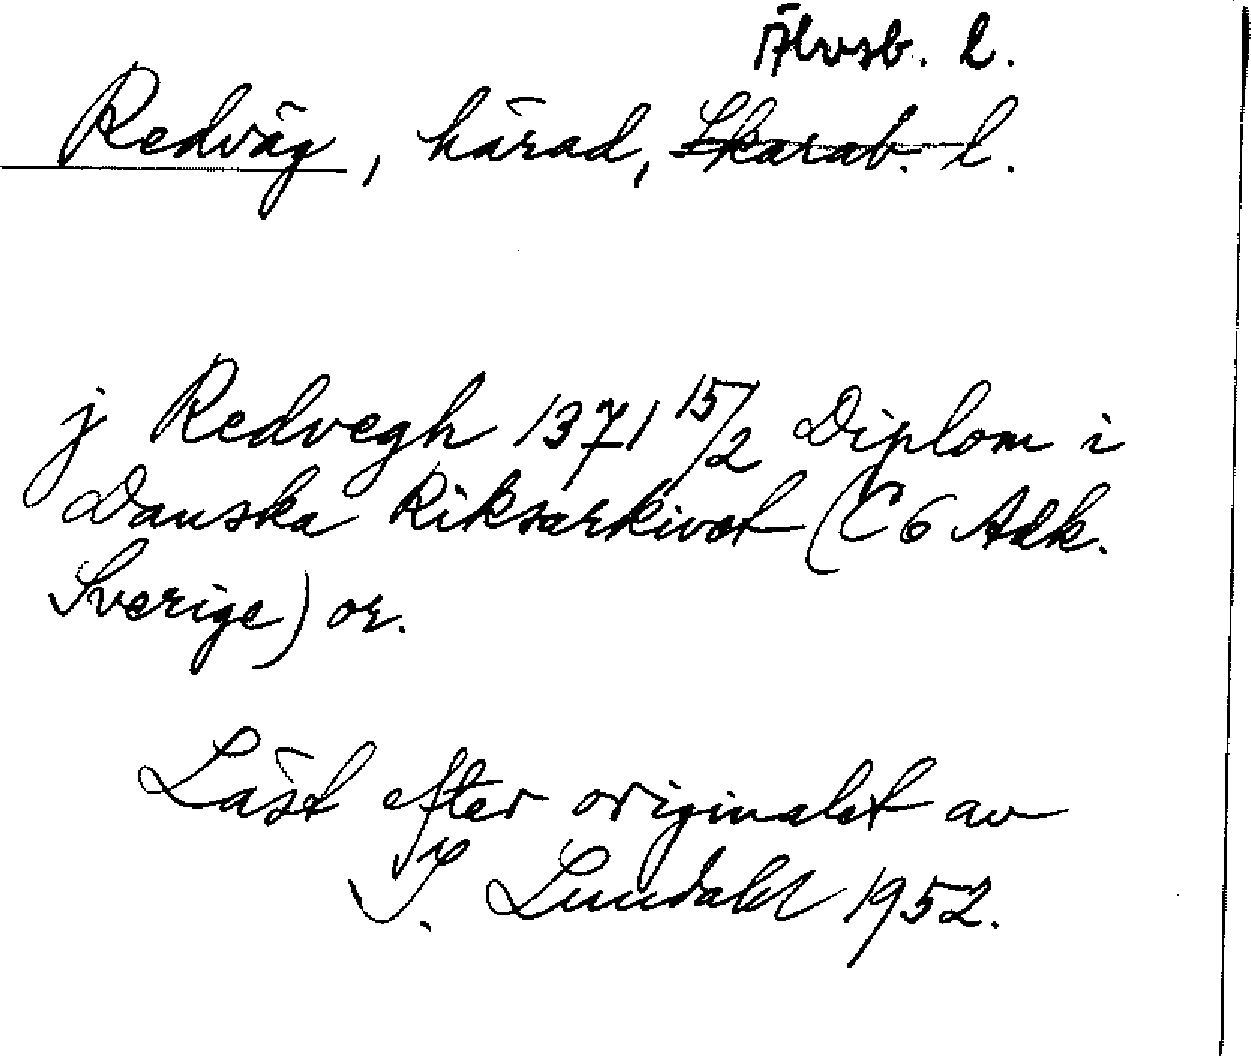 Älvsb. l.
Redväg, härad, Skarab. l.
j Redvegh 1371 15/2 Diplom i
Danska Riksarkivet (C6 Adk.
Sverige) or.
Läst efter originalet av
I. Lundahl 1952.